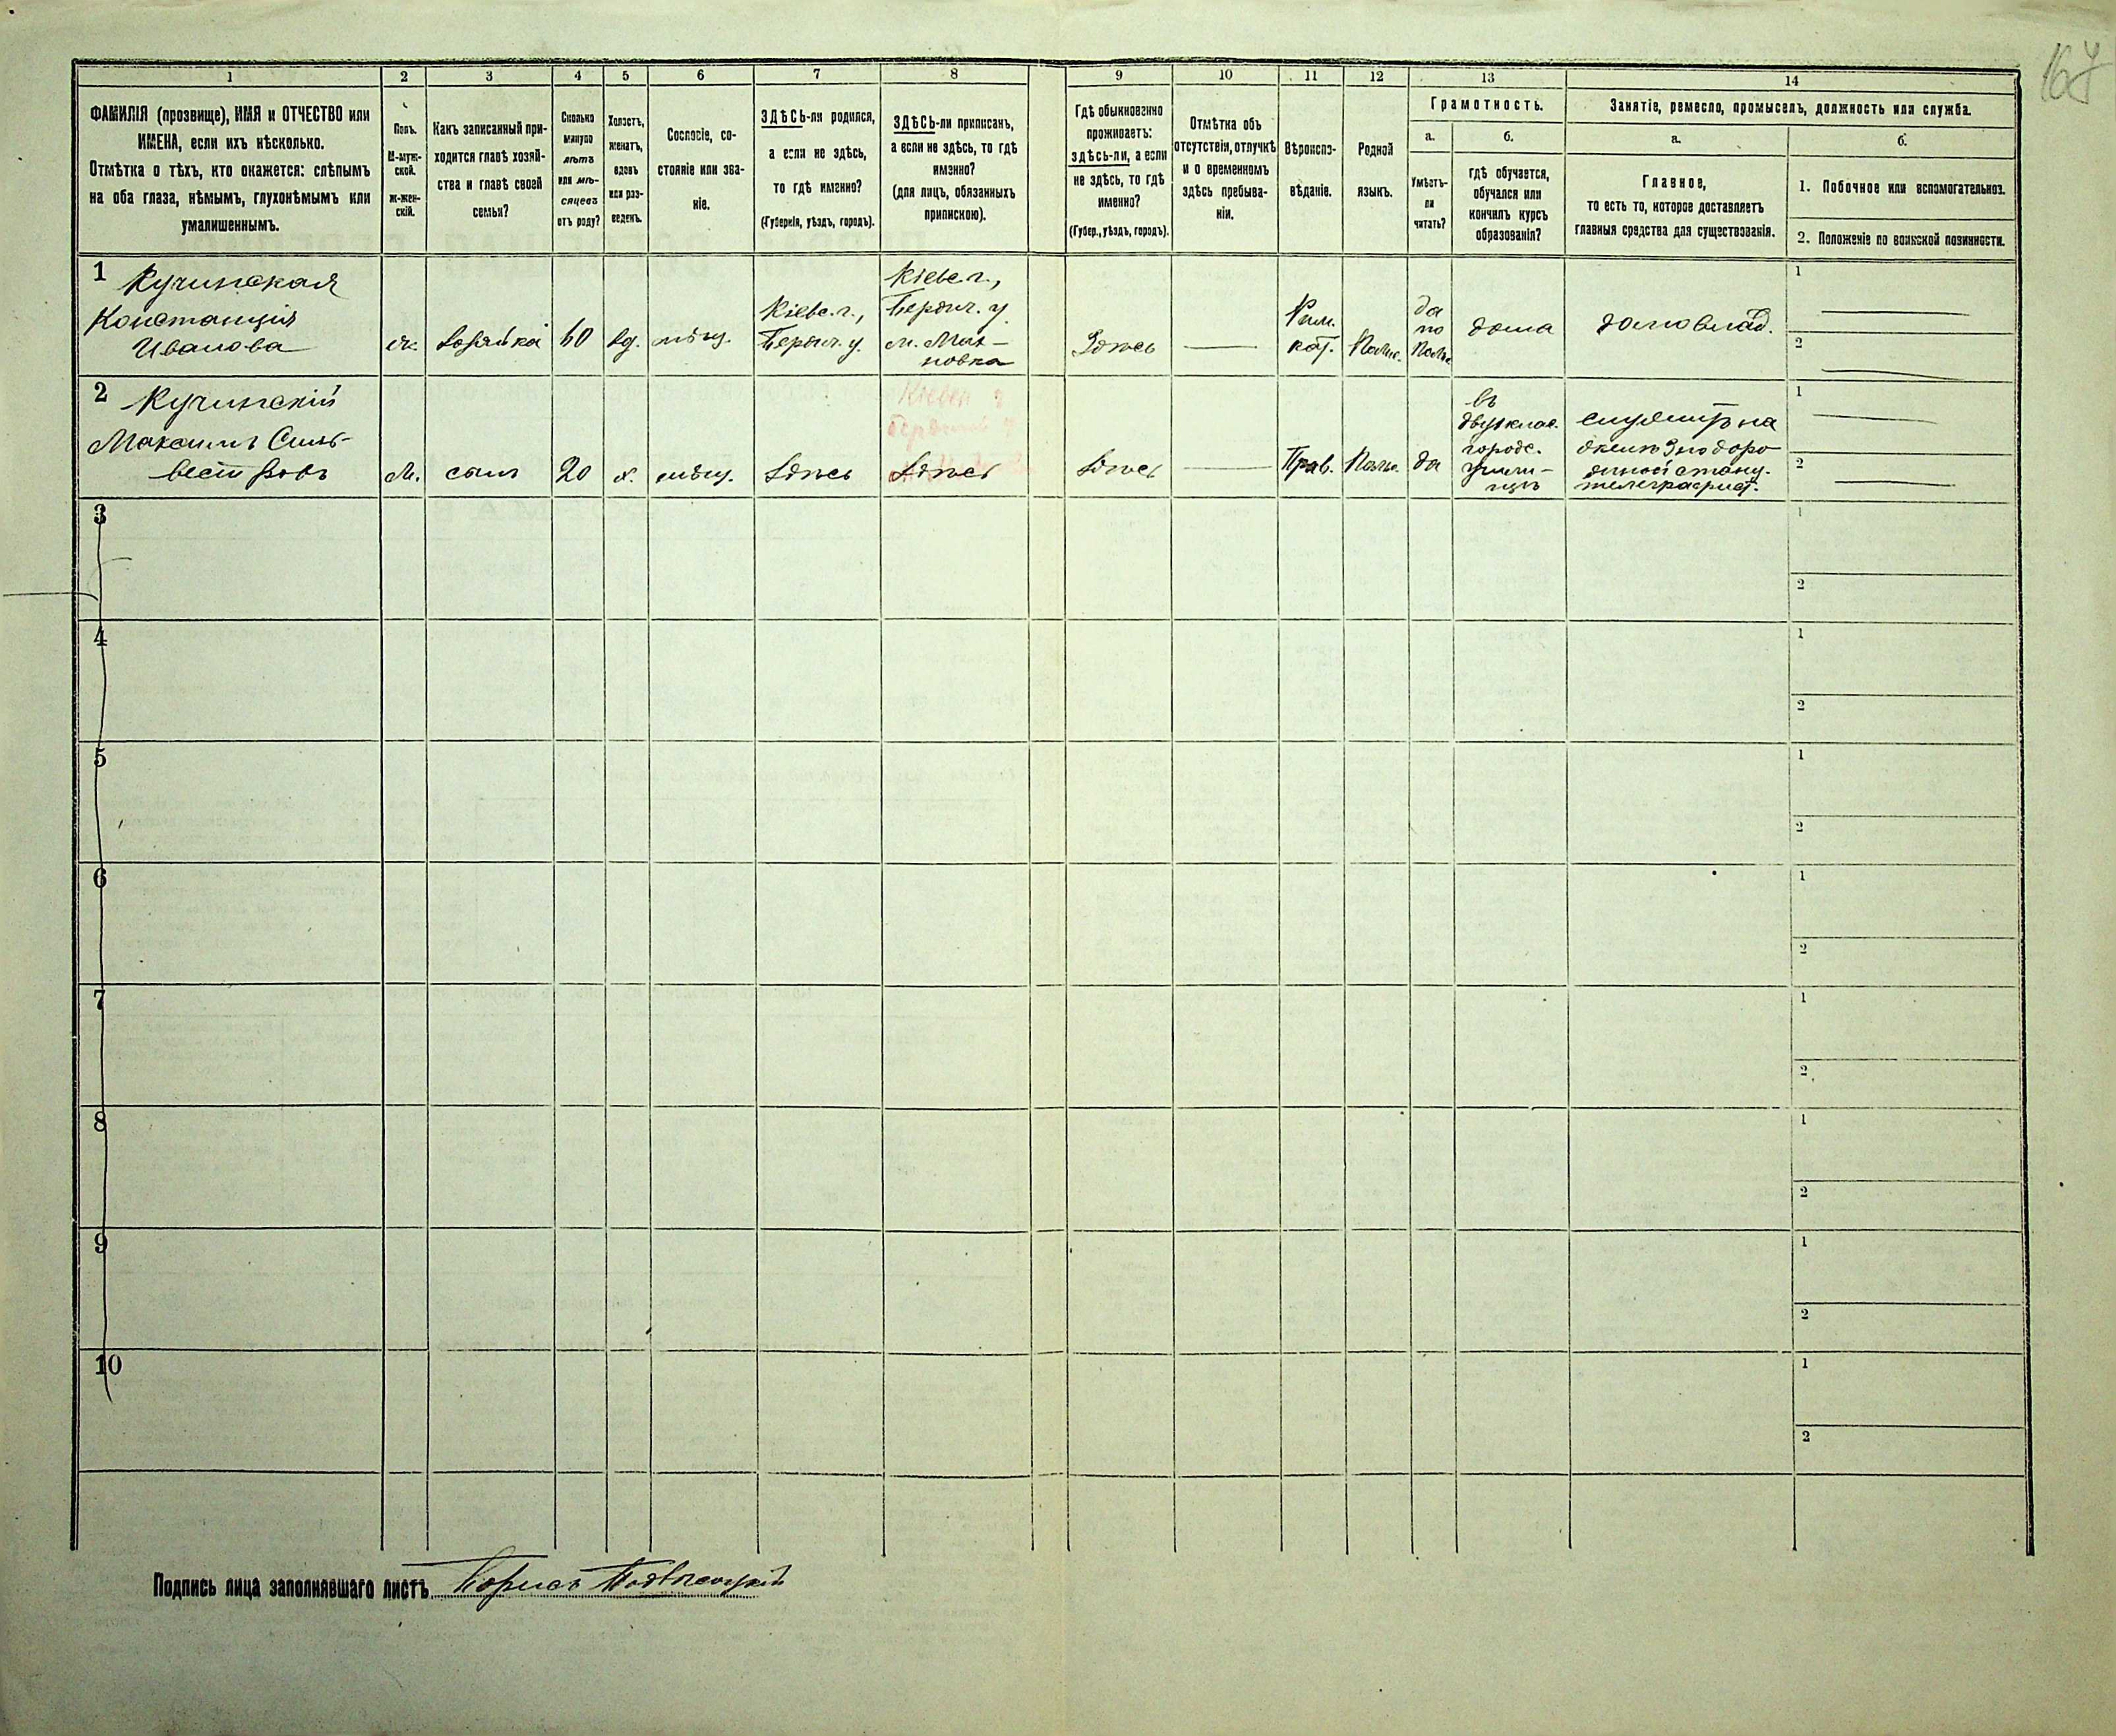 167
1 2 3 4 5 6 7 8 9 10 11 12 13 14
ФАМИЛІЯ (прозвище), ИМЯ и ОТЧЕСТВО или
ИМЕНА, если ихъ нѣсколько.
Отмѣтка о тѣхъ, кто окажется: слѣпымъ
на оба глаза, нѣмымъ, глухонѣмымъ или
умалишеннымъ.
Полъ.
М-муж-
ской.
ж-жен-
скій.
Какъ записанный при-
ходится главѣ хозяй-
ства и главѣ своей
семьи?
Сколько
минуло
лѣтъ
или мѣ-
сяцевъ
отъ роду?
Холостъ,
женатъ,
вдовъ
или раз-
веденъ.
Сословіе, со-
стояніе или зва-
ніе.
ЗДѢСЬ-ли родился,
а если не здѣсь,
то гдѣ именно?
(Губернія, уѣздъ, городъ).
ЗДѢСЬ-ли приписанъ,
а если не здѣсь, то гдѣ
именно?
(для лицъ, обязанныхъ
припискою).
Гдѣ обыкновенно
проживаетъ:
здѣсь-ли, а если
не здѣсь, то гдѣ
именно?
(Губер., уѣздъ, городъ).
Отмѣтка объ
отсутствіи, отлучкѣ
и о временномъ
здѣсь пребыва-
ніи.
Вѣроиспо-
вѣданіе.
Родной
языкъ.
Грамотность.
а.
Умѣетъ-
ли
читать?
б.
гдѣ обучается,
обучался или
кончилъ курсъ
образованія?
Занятіе, ремесло, промыселъ, должность или служба.
а.
Главное,
то есть то, которое доставляетъ
главныя средства для существованія.
б.
1. Побочное или вспомогательное.
2. Положеніе по воинской повинности.
1 Кучинская
Констанція
Иванова
ж.
хозяйка
60
вд.
мѣщ.
Кіевс. г.,
Бердич. у.
Кіевс. г.,
Бердич. у.
м. Мах-
новка
Здѣсь
Рим.
кат.
Польс.
да
по
Польс
дома
домовлад.
1
2
2 Кучинскій
Максимъ Силь-
вестровъ
М.
сынъ
20
х.
мѣщ.
Здѣсь
Кіевск г
Бердич у
Здѣсь
Здѣсь
Прав.
Польс.
да
въ
двухклас.
городс.
учили-
щѣ
служитъ на
желѣзнодоро
жной станц.
телеграфист.
1
2
3
1
2
4
1
2
5
1
2
6
1
2
7
1
2
8
1
2
9
1
2
10
1
2
Подпись лица заполнявшаго листъ Борисъ Подвысоцкій